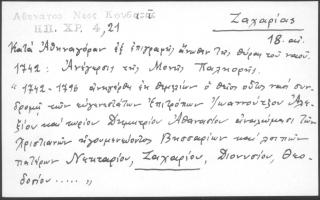 Αθηναγορας Νεος Κουβαρᾶς
ΗΠ. ΧΡ. 4,21
Ζαχαρίας
18. αἰ.
Κατὰ Ἀθηναγόραν ἐξ ἐπιγραφῆς ἄνωθεν τῆς θύρας τοῦ ναοῦ.
1742: Ἀνέγερσις τῆς Μονῆς Παλιορῆς.
" 1742-1746 ἀνηγέρθη ἐκ θεμελίων ὁ θεῖος οὗτος ναὸς συν
δρομῇ τῶν εὐγενεστάτων Ἐπιτρόπων Ἰωαννούτζου Ἀλε
ξίου καὶ κυρίου Δημητρίου Ἀθανασίου ἀναλώμασι τῶν
Χριστιανῶν ἡγουμενεύοντος Βησσαρίων καὶ λοιπῶν
πατέρων Νεκταρίου, Ζαχαρίου, Διονυσίου, Θεο
δοσίου ..... "